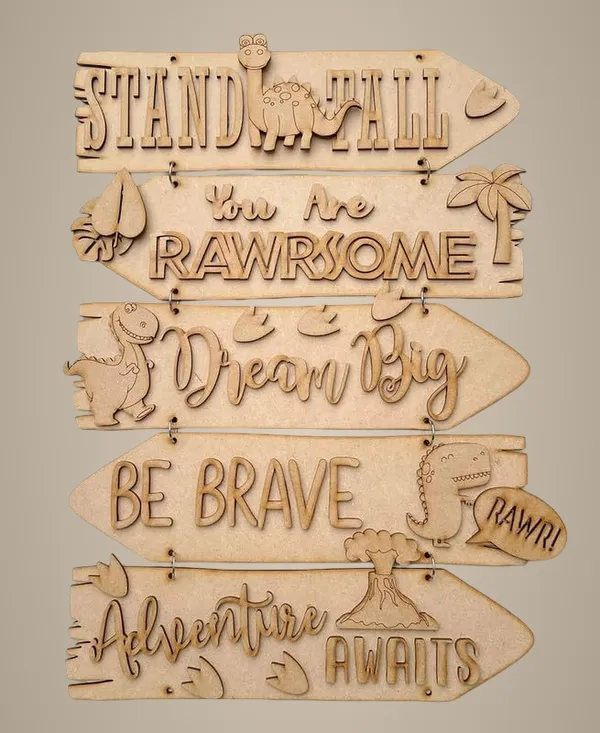 STAND TALL
You Are
RAWRSOME
Dream Big
BE BRAVE
RAWR!
Adventure
AWAITS